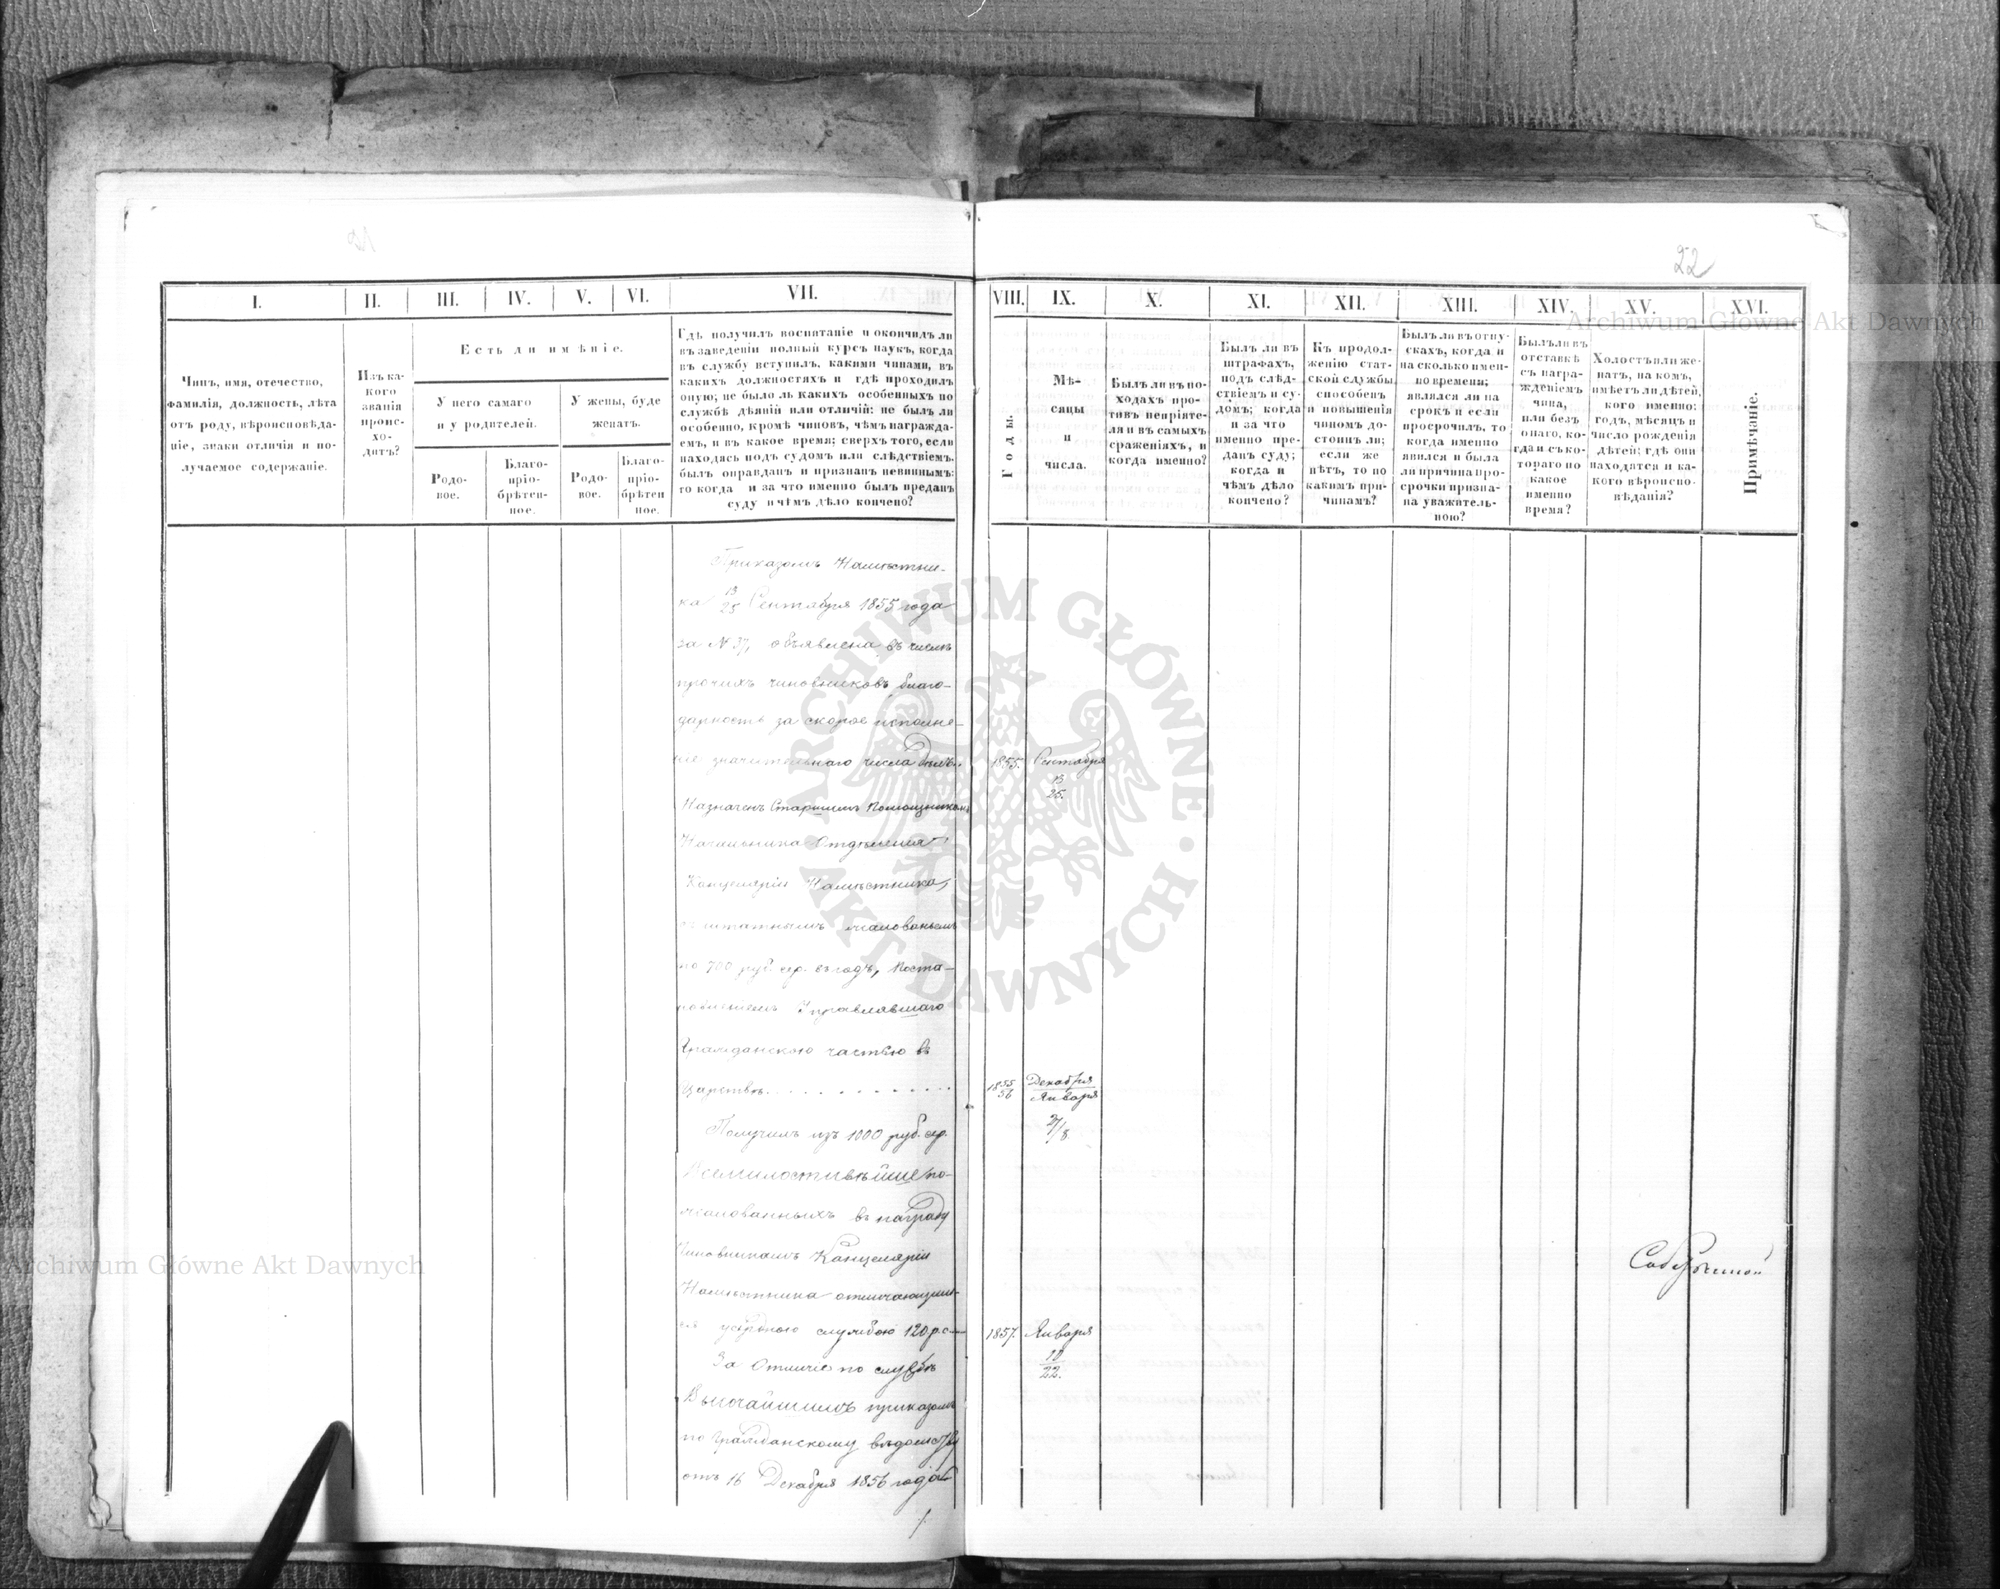 22
I.
II.
III.
IV.
V.
VI.
VII.
VIII.
IX.
X.
XI.
XII.
XIII.
XIV.
XV.
XVI.
Чинъ, имя, отечество,
фамилія, должность, лѣта
отъ роду, вѣроисповѣда-
ніе, знаки отличія и по-
лучаемое содержаніе.
Изъ ка-
кого
званія
проис-
хо-
дитъ?
Есть ли имѣніе.
У него самаго
и у родителей.
У жены, буде
женатъ.
Родо-
вое.
Благо-
пріо-
брѣтен-
ное.
Родо-
вое.
Благо-
пріо-
брѣтен
ное.
Гдѣ получилъ воспитаніе и окончилъ ли
въ заведеніи полный курсъ наукъ, когда
въ службу вступилъ, какими чинами, въ
какихъ должностяхъ и гдѣ проходилъ
оную; не было ль какихъ особенныхъ по
службѣ дѣяній или отличій: не былъ ли
особенно, кромѣ чиновъ, чѣмъ награжда-
емъ, и въ какое время; сверхъ того, если
находясь подъ судомъ или слѣдствіемъ
былъ оправданъ и признанъ невиннымъ:
то когда и за что именно былъ преданъ
суду и чѣмъ дѣло кончено?
Годы.
Мѣ-
сяцы
и
числа.
Былъ ли въ по-
ходахъ про-
тивъ непріяте-
ля и въ самыхъ
сраженіяхъ, и
когда именно?
Былъ ли въ
штрафахъ,
подъ слѣд-
ствіемъ и су-
домъ; когда
и за что
именно пре-
данъ суду;
когда и
чѣмъ дѣло
кончено?
Къ продол-
женію стат-
ской службы
способенъ
и повышенія
чиномъ до-
стоинъ ли;
если же
нѣтъ, то по
какимъ при-
чинамъ?
Былъ ли въ отпу-
скахъ, когда и
на сколько имен-
но времени;
являлся ли на
срокъ и если
просрочилъ, то
когда именно
явился и была
ли причина про-
срочки призна-
на уважитель-
ною?
Былъ ли въ
отставкѣ
съ награ-
жденіемъ
чина,
или безъ
онаго, ко-
гда и съ ко-
тораго по
какое
именно
время?
Холостъ или же-
натъ, на комъ,
имѣетъ ли дѣтей,
кого именно;
годъ, мѣсяцъ и
число рожденія
дѣтей; гдѣ они
находятся и ка-
кого вѣроиспо-
вѣданія?
Примѣчаніе.
Приказомъ Намѣстни-
ка 13/25 Сентября 1855 года
за № 37, объявлена въ числѣ
прочихъ чиновниковъ благо-
дарность за скорое исполне-
ніе значительнаго числа дѣлъ.
1855. Сентября
13
25.
Назначенъ Старшимъ Помощникомъ
Начальника Отдѣленія
Канцеляріи Намѣстника,
съ штатнымъ жалованьемъ
по 700 руб. сер. въ годъ, Поста-
новленіемъ Управлявшаго
Гражданскою частью въ
Царствѣ. . . . . . . . . .
1855/56 Декабря
Января
27/8.
Получилъ изъ 1000 руб. сер.
Всемилостивѣйше по-
жалованныхъ въ награду
Чиновникамъ Канцеляріи
Намѣстника отличающим-
ся усердною службою 120 р. с.
1857. Января
10
22.
За отличіе по службѣ
Высочайшимъ приказомъ
по Гражданскому вѣдомству
отъ 16 Декабря 1856 года
Archiwum Główne Akt Dawnych
Archiwum Główne Akt Dawnych
ARCHIWUM GŁÓWNE · AKT DAWNYCH ·